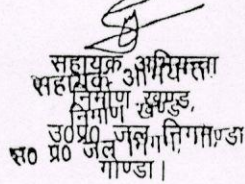 सहायक अभियन्ता
सहायक अभियन्ता
निर्माण खण्ड,
निर्माण खण्ड,
उ०प्र० जल निगम
उ० प्र० जल निगम,
गोण्डा।